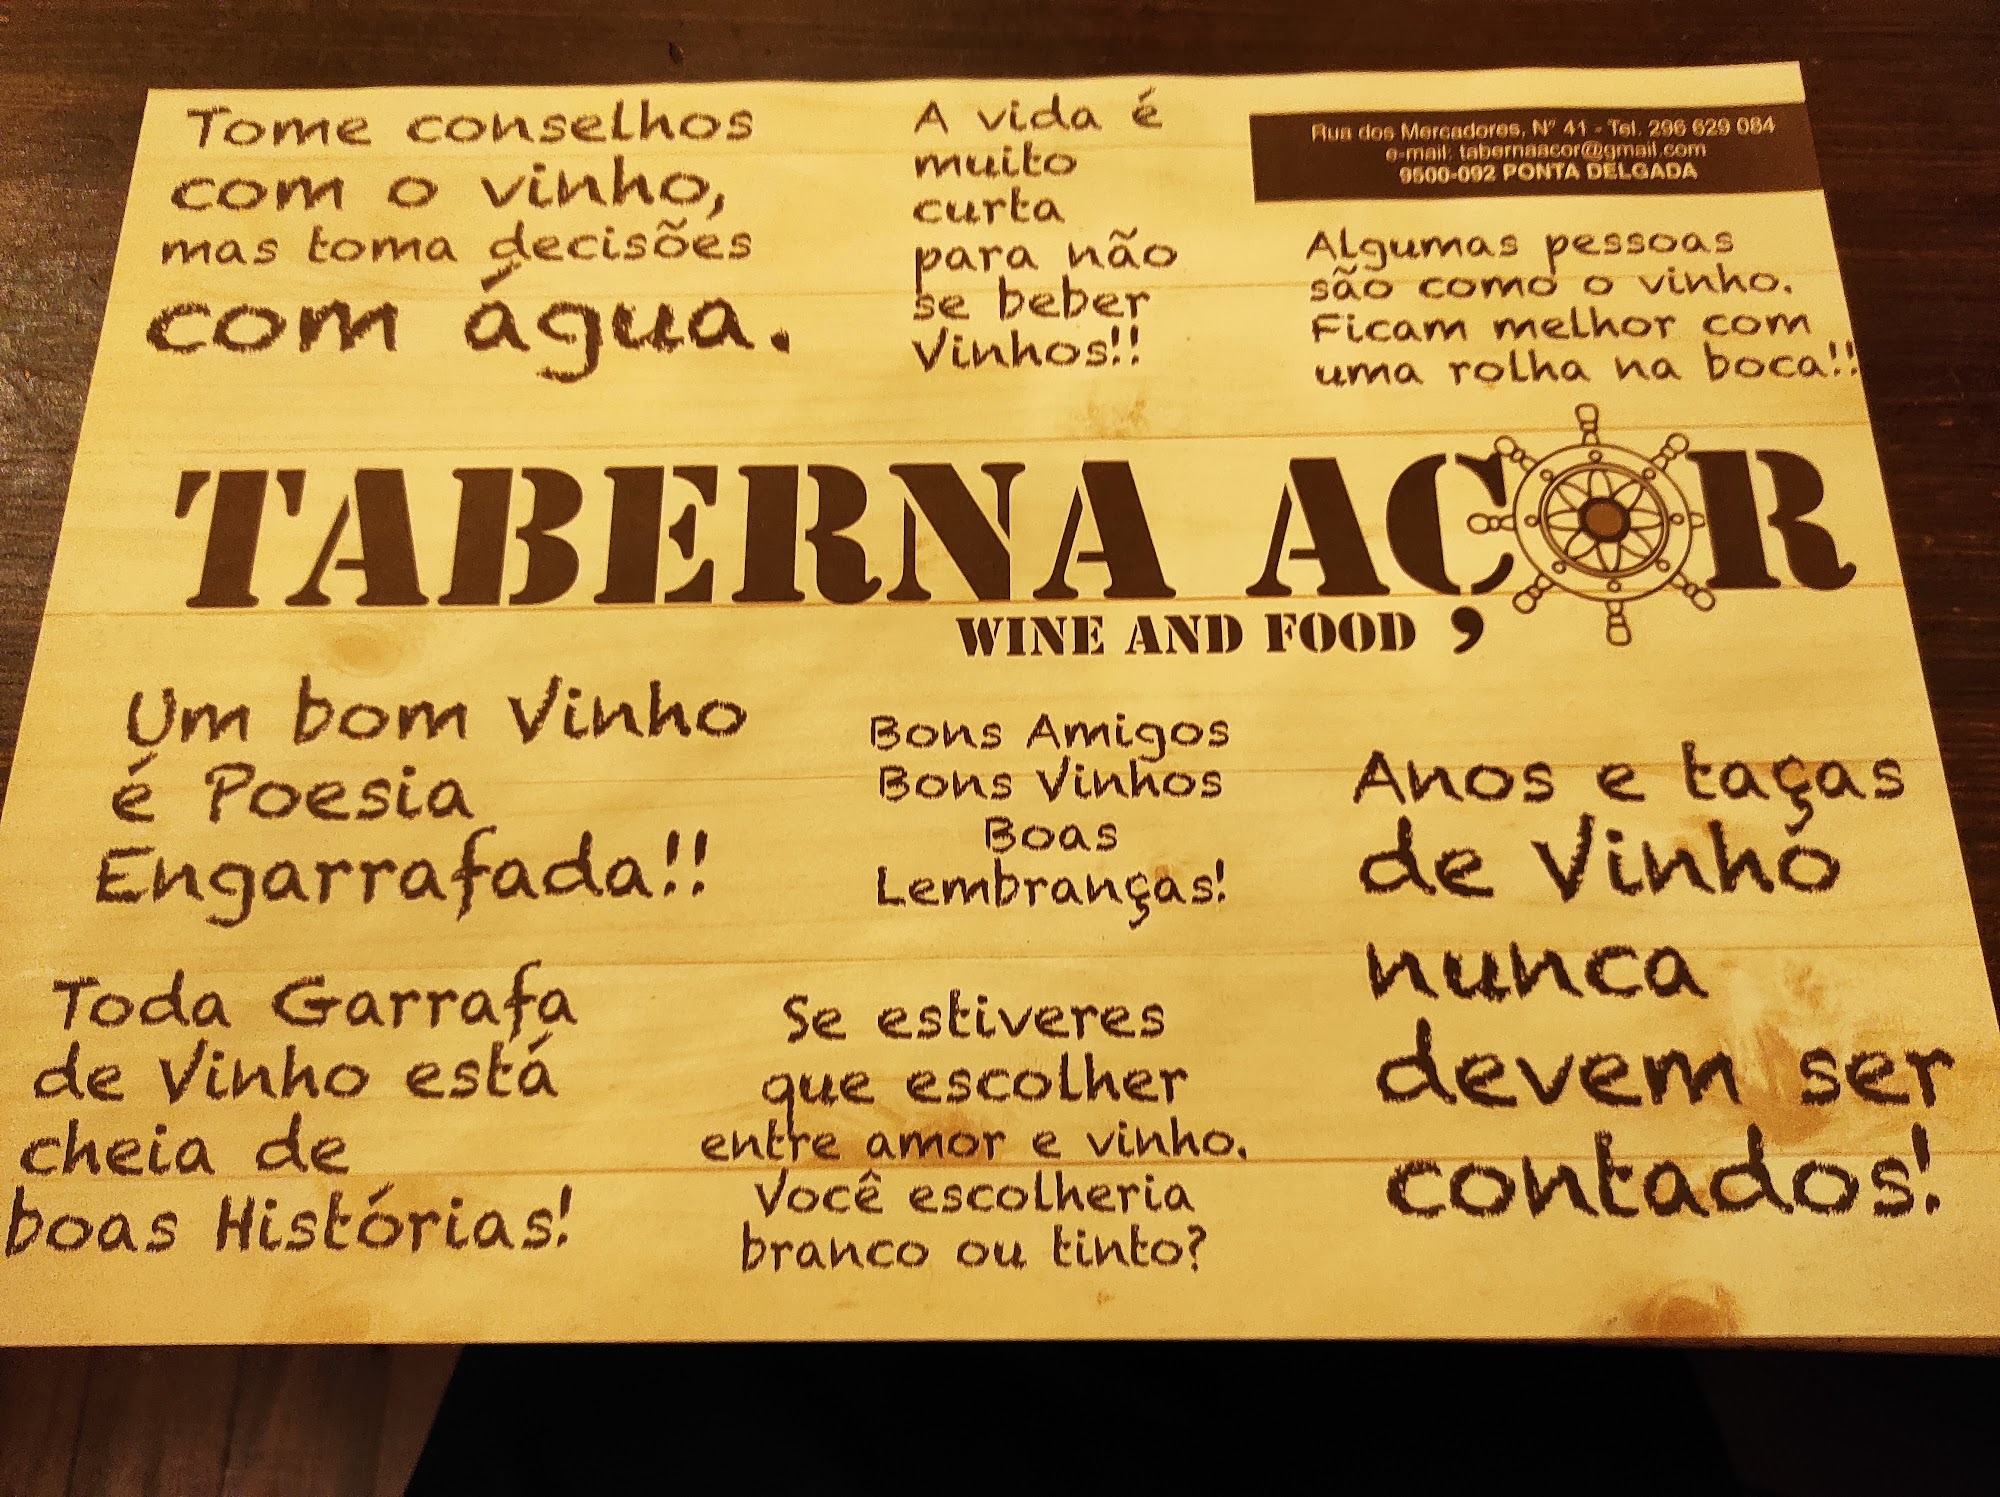 Tome conselhos
com o vinho,
mas toma decisões
com água.
A vida é
muito
curta
para não
se beber
Vinhos!!
Rua dos Mercadores, Nº 41 - Tel. 296 629 084
e-mail: tabernaacor@gmail.com
9500-092 PONTA DELGADA
Algumas pessoas
são como o vinho.
Ficam melhor com
uma rolha na boca!!
TABERNA AÇOR
WINE AND FOOD
Um bom Vinho
é Poesia
Engarrafada!!
Bons Amigos
Bons Vinhos
Boas
Lembranças!
Anos e taças
de Vinho
nunca
devem ser
contados!
Toda Garrafa
de Vinho está
cheia de
boas Histórias!
Se estiveres
que escolher
entre amor e vinho.
Você escolheria
branco ou tinto?